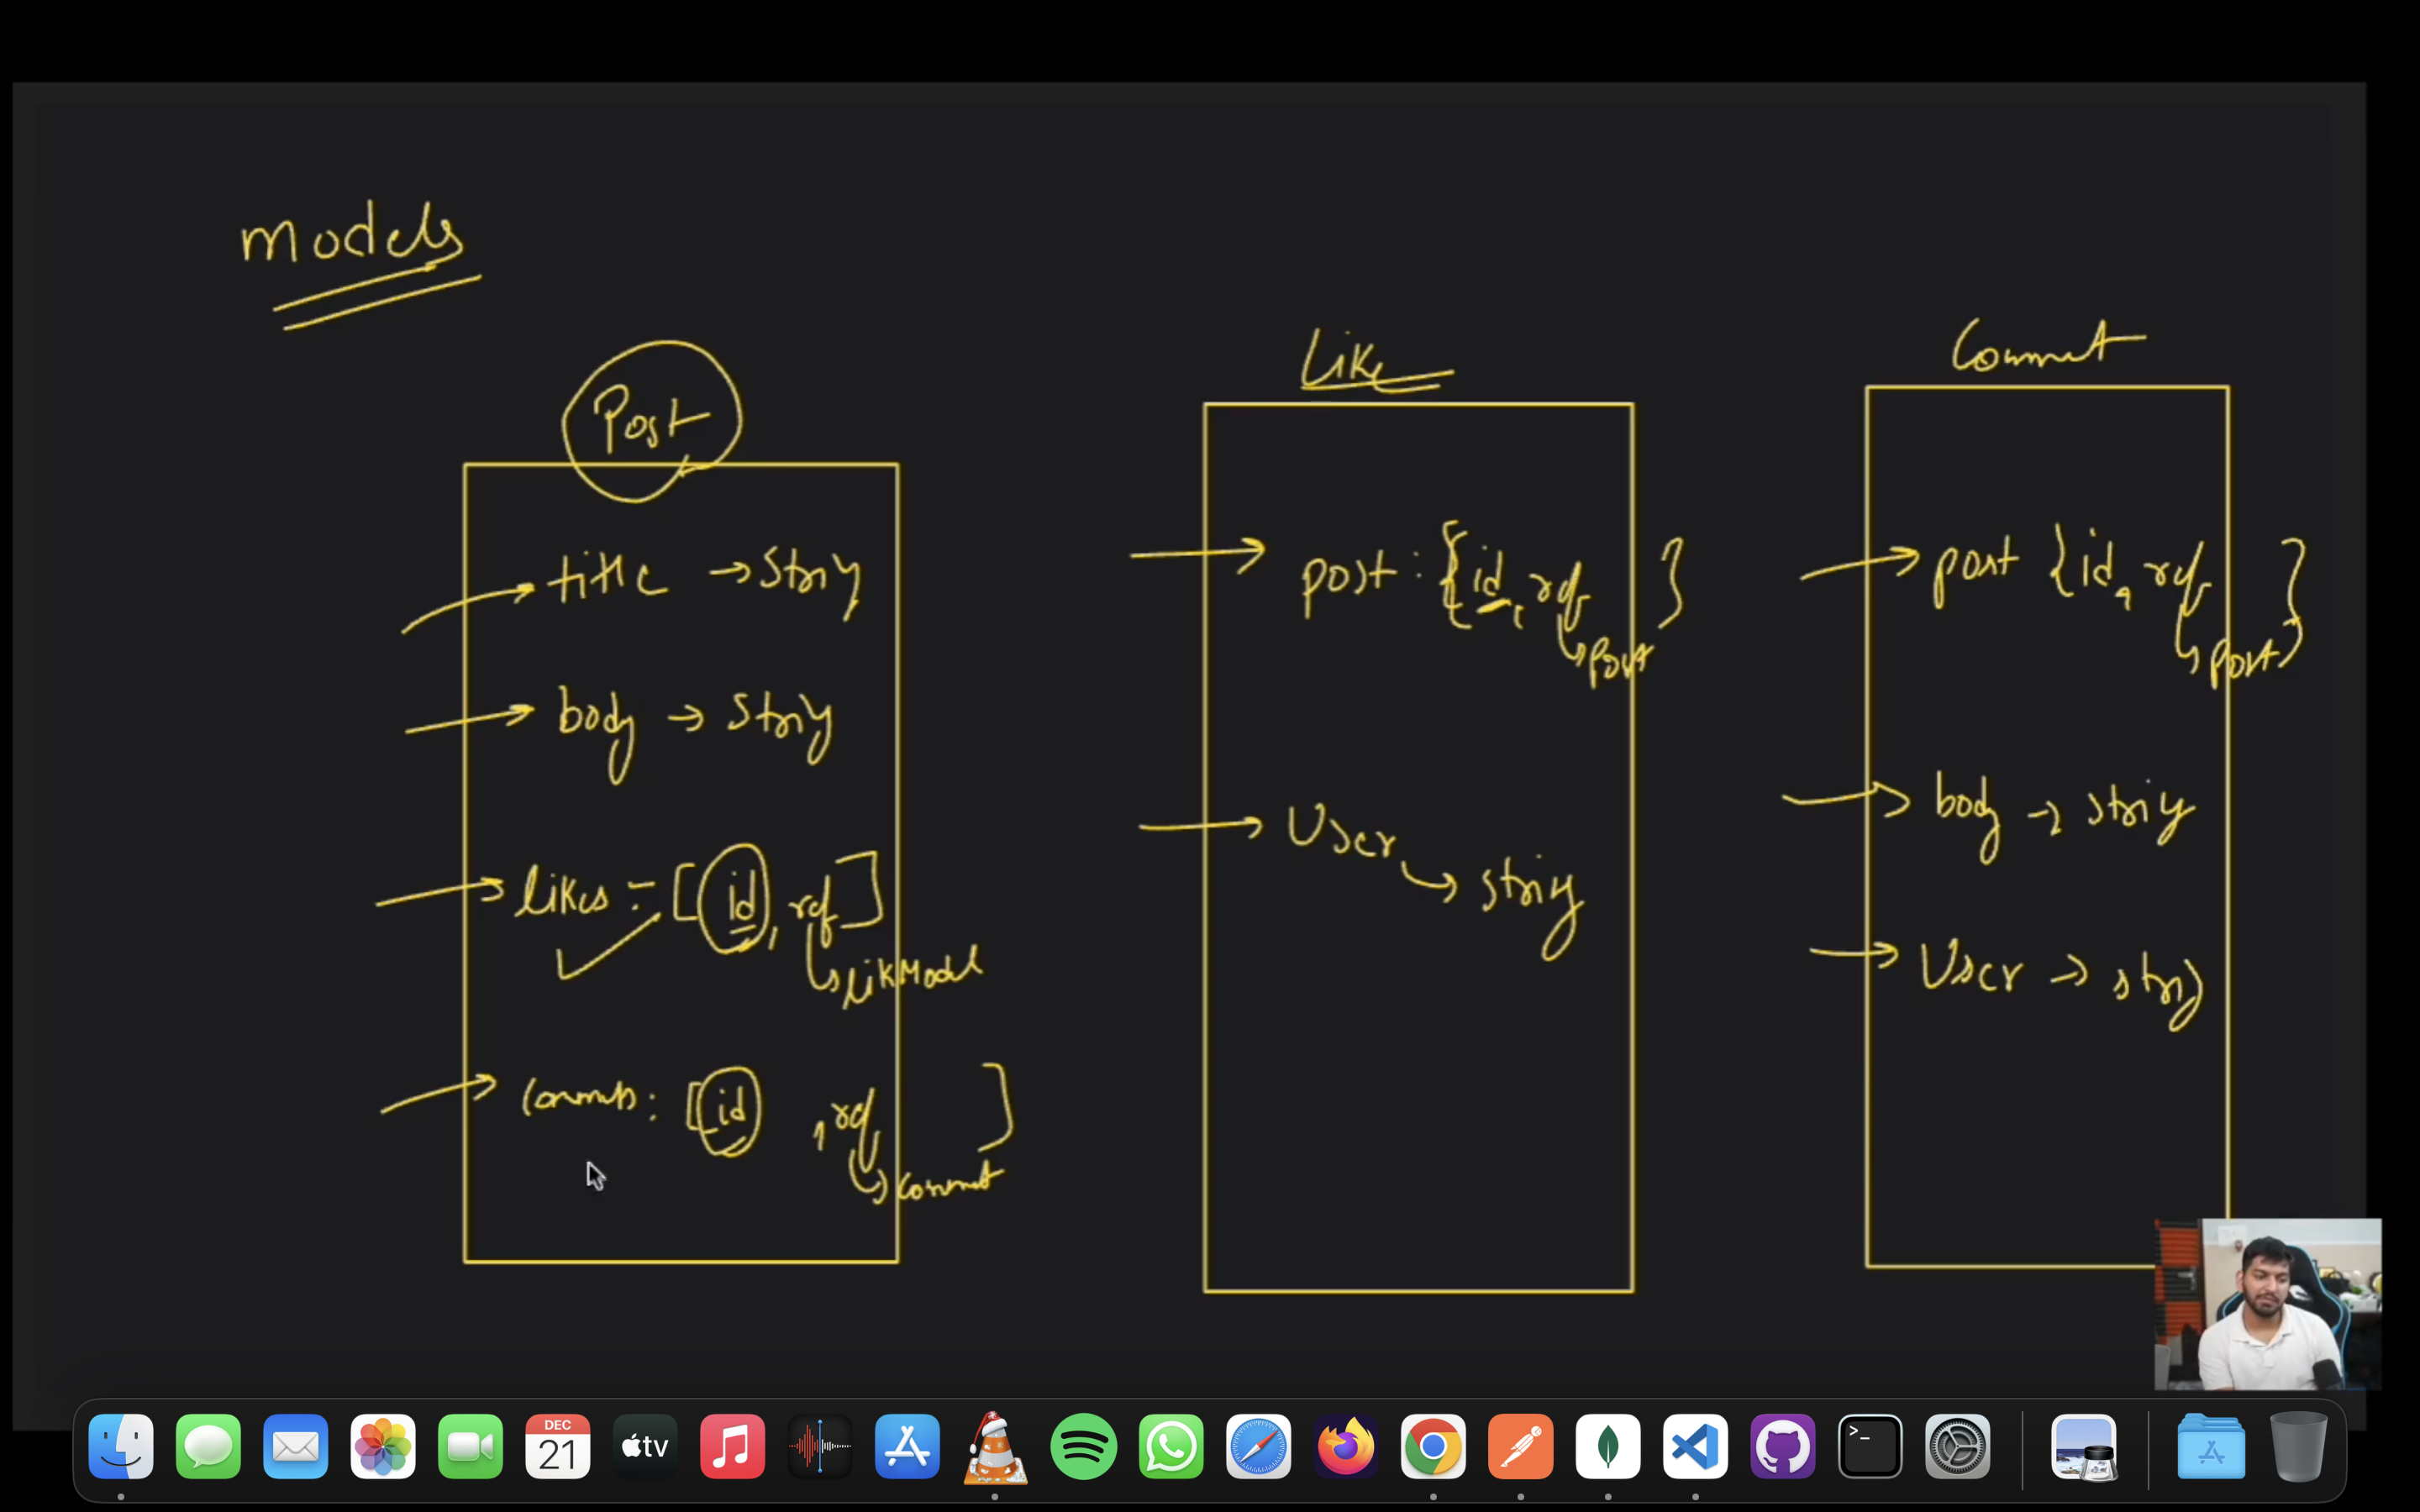 models
Post
title → string
body → string
likes : [id, ref]
↳ LikModel
comments : [id , ref ]
↳ Comment
Like
post : {id, ref }
↳ Post
User
↳ string
Comment
post {id, ref }
↳ Post
body → string
User → string
DEC
21
tv
>_